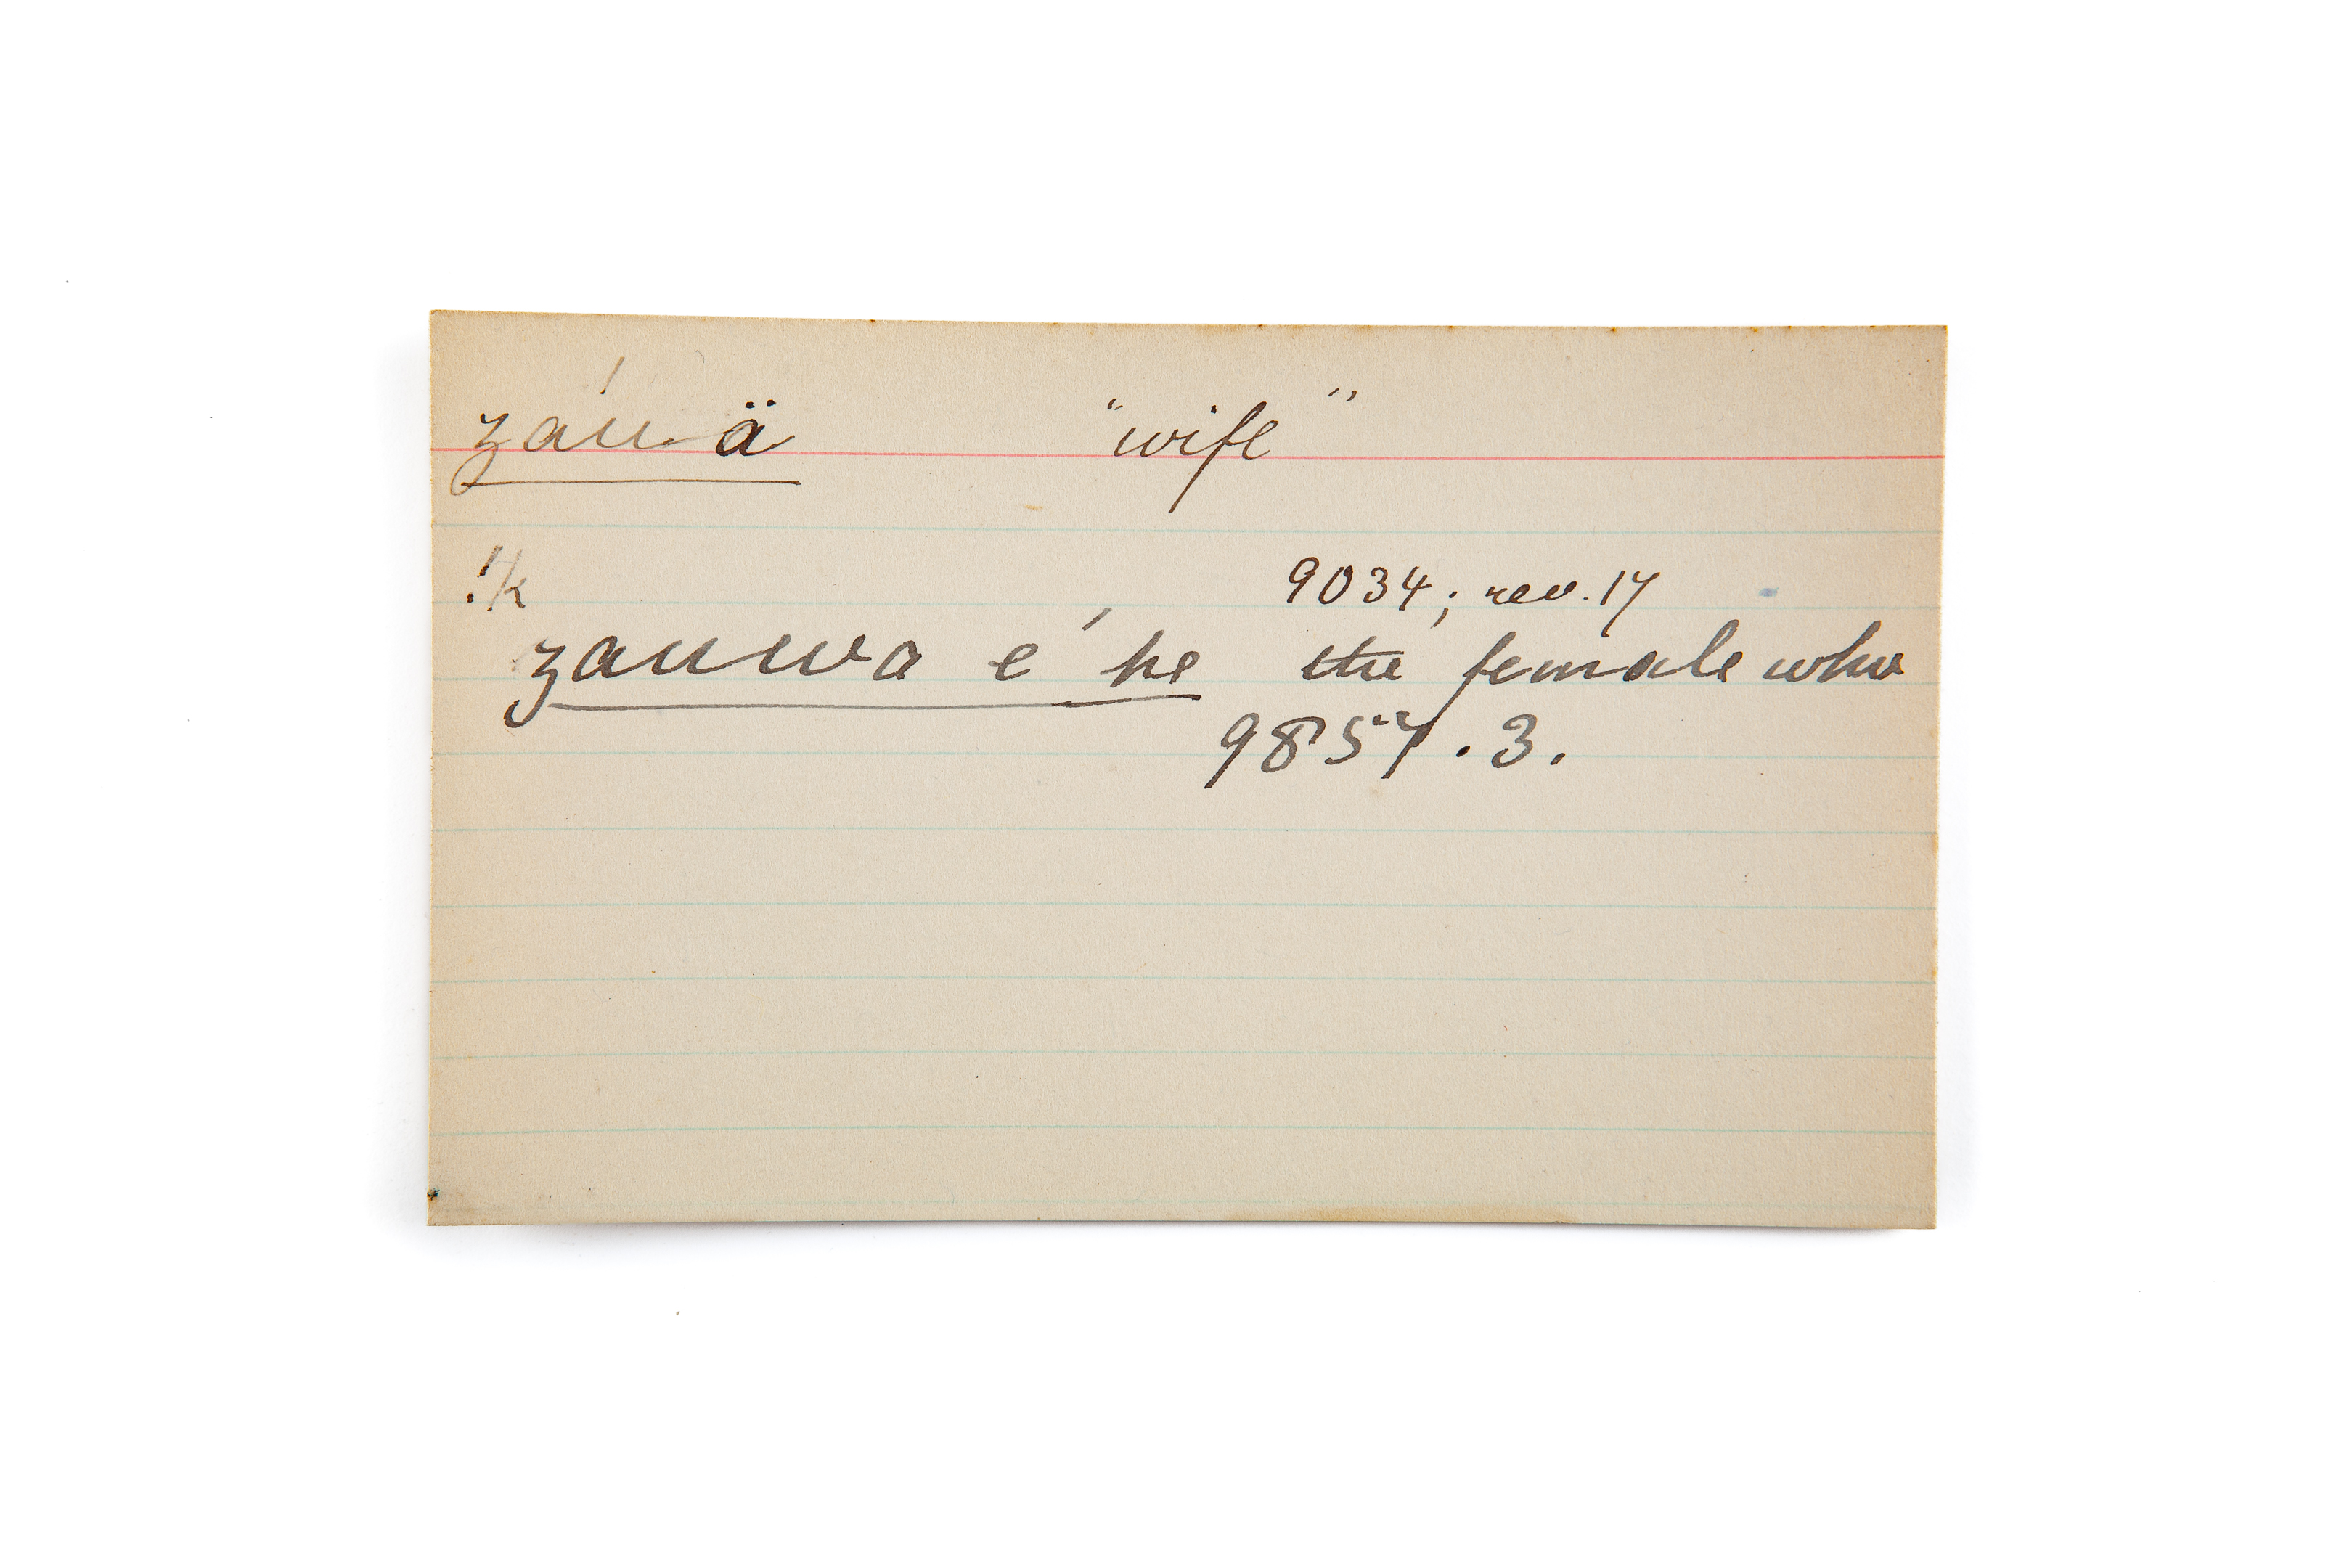 záu ä "wife"
9034; rev. 17
zauwa é he the female who
9857.3.